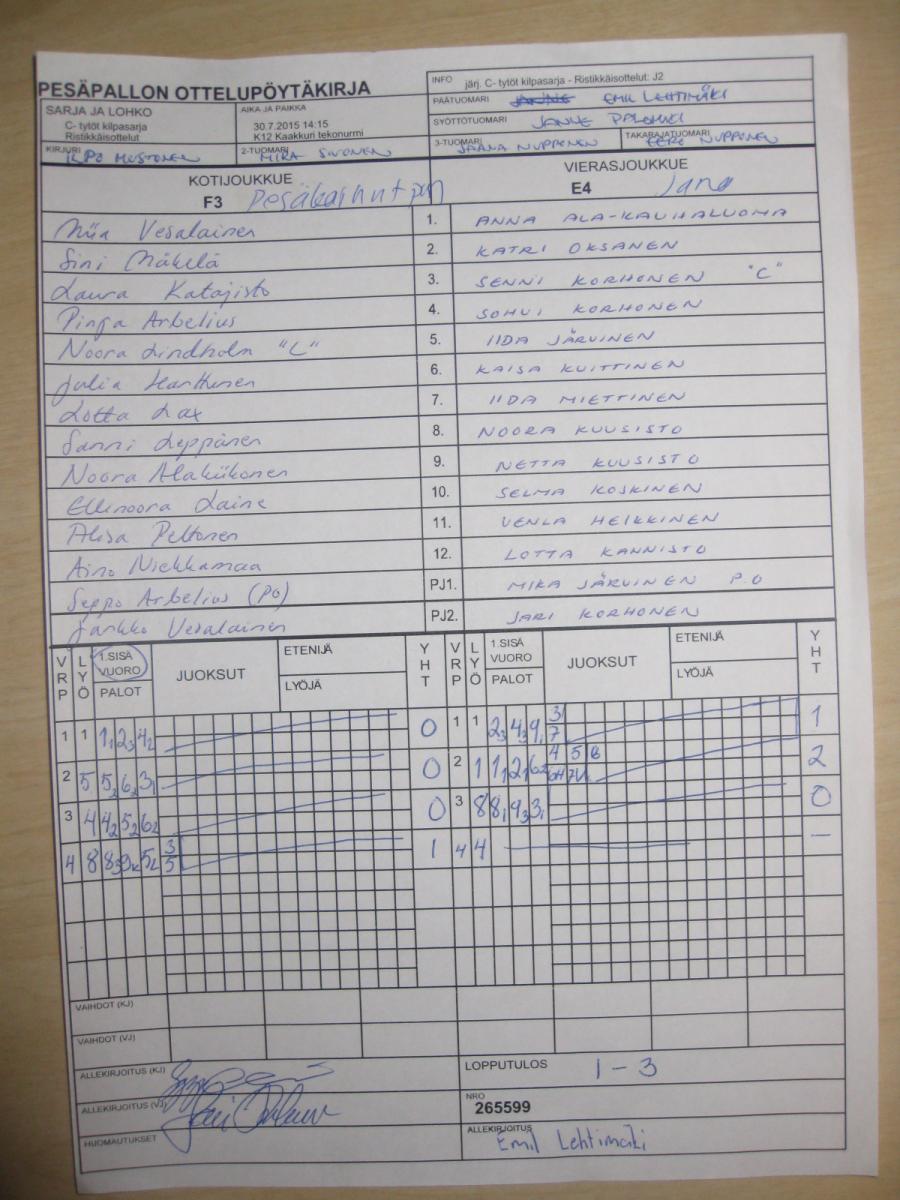 PESÄPALLON OTTELUPÖYTÄKIRJA
INFO järj. C- tytöt kilpasarja - Ristikkäisottelut: J2
PÄÄTUOMARI EMIL LEHTIMÄKI
SYÖTTÖTUOMARI JANNE
3-TUOMARI JAANA NUPPONEN
TAKARAJATUOMARI EERO NUPPONEN
SARJA JA LOHKO
C- tytöt kilpasarja
Ristikkäisottelut
AIKA JA PAIKKA
30.7.2015 14:15
K12 Kaakkuri tekonurmi
KIRJURI ILPO MUSTONEN
2-TUOMARI MIKA SIVONEN
KOTIJOUKKUE
F3
VIERASJOUKKUE
E4 Jana
Miia Vesalainen
1. ANNA ALA-KAUHALUOMA
Sini Mäkelä
2. KATRI OKSANEN
Laura Katajisto
3. SENNI KORHONEN "C"
Pinja Arbelius
4. SOHVI KORHONEN
Noora Lindholm "C"
5. IIDA JÄRVINEN
Julia Hanttunen
6. KAISA KUITTINEN
Lotta Lax
7. IIDA MIETTINEN
Sanni Leppänen
8. NOORA KUUSISTO
Noora Alakiikonen
9. NETTA KUUSISTO
Ellinoora Laine
10. SELMA KOSKINEN
Alisa Peltonen
11. VENLA HEIKKINEN
Aino Niekkamaa
12. LOTTA KANNISTO
Seppo Arbelius (PO)
PJ1. MIKA JÄRVINEN P.O
Jarkko Vesalainen
PJ2. JARI KORHONEN
VRP LYÖ 1.SISÄ VUORO PALOT JUOKSUT ETENIJÄ LYÖJÄ YHT
VRP LYÖ 1.SISÄ VUORO PALOT JUOKSUT ETENIJÄ LYÖJÄ YHT
1 1 1₁ 2₃ 4₂ 0
1 1 2₃ 4₃ 9₁ 3/7 1
2 5 5₂ 6₂ 3₁ 0
2 1 1₁ 2₁ 6₂ 4 5 2
3 4 4₂ 5₂ 6₂ 0
3 8 8₁ 9₃ 3₁ 0
4 8 8₃ 9₂ 5₂ 3/5 1
4 4 –
VAIHDOT (KJ)
VAIHDOT (VJ)
ALLEKIRJOITUS (KJ)
LOPPUTULOS 1 - 3
ALLEKIRJOITUS (VJ)
NRO
265599
HUOMAUTUKSET
ALLEKIRJOITUS
Emil Lehtimäki